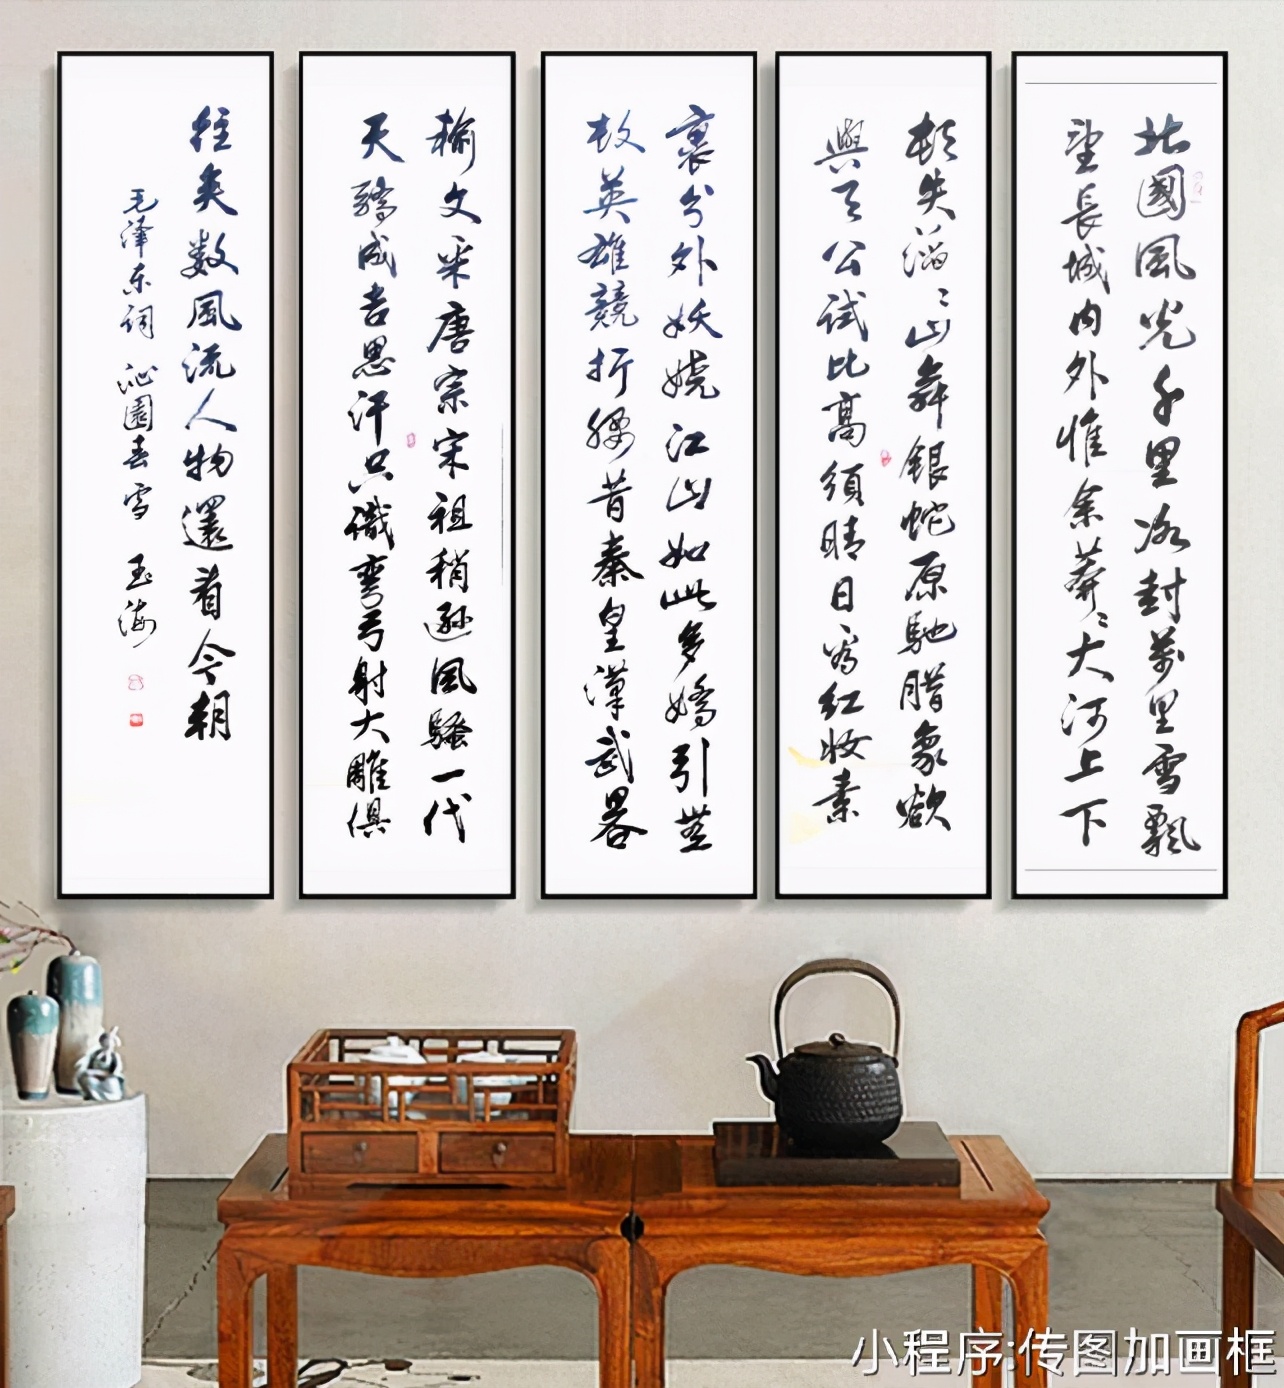 北國風光千里冰封萬里雪飄
望長城內外惟余莽〻大河上下
頓失滔〻山舞銀蛇原馳腊象欲
與天公試比高須晴日看紅妆素
裹分外妖娆江山如此多嬌引無
数英雄競折腰昔秦皇漢武畧
输文采唐宗宋祖稍逊風騷一代
天骄成吉思汗只識弯弓射大雕俱
往矣数風流人物還看今朝
毛泽东词 沁園春雪 玉海
小程序:传图加画框